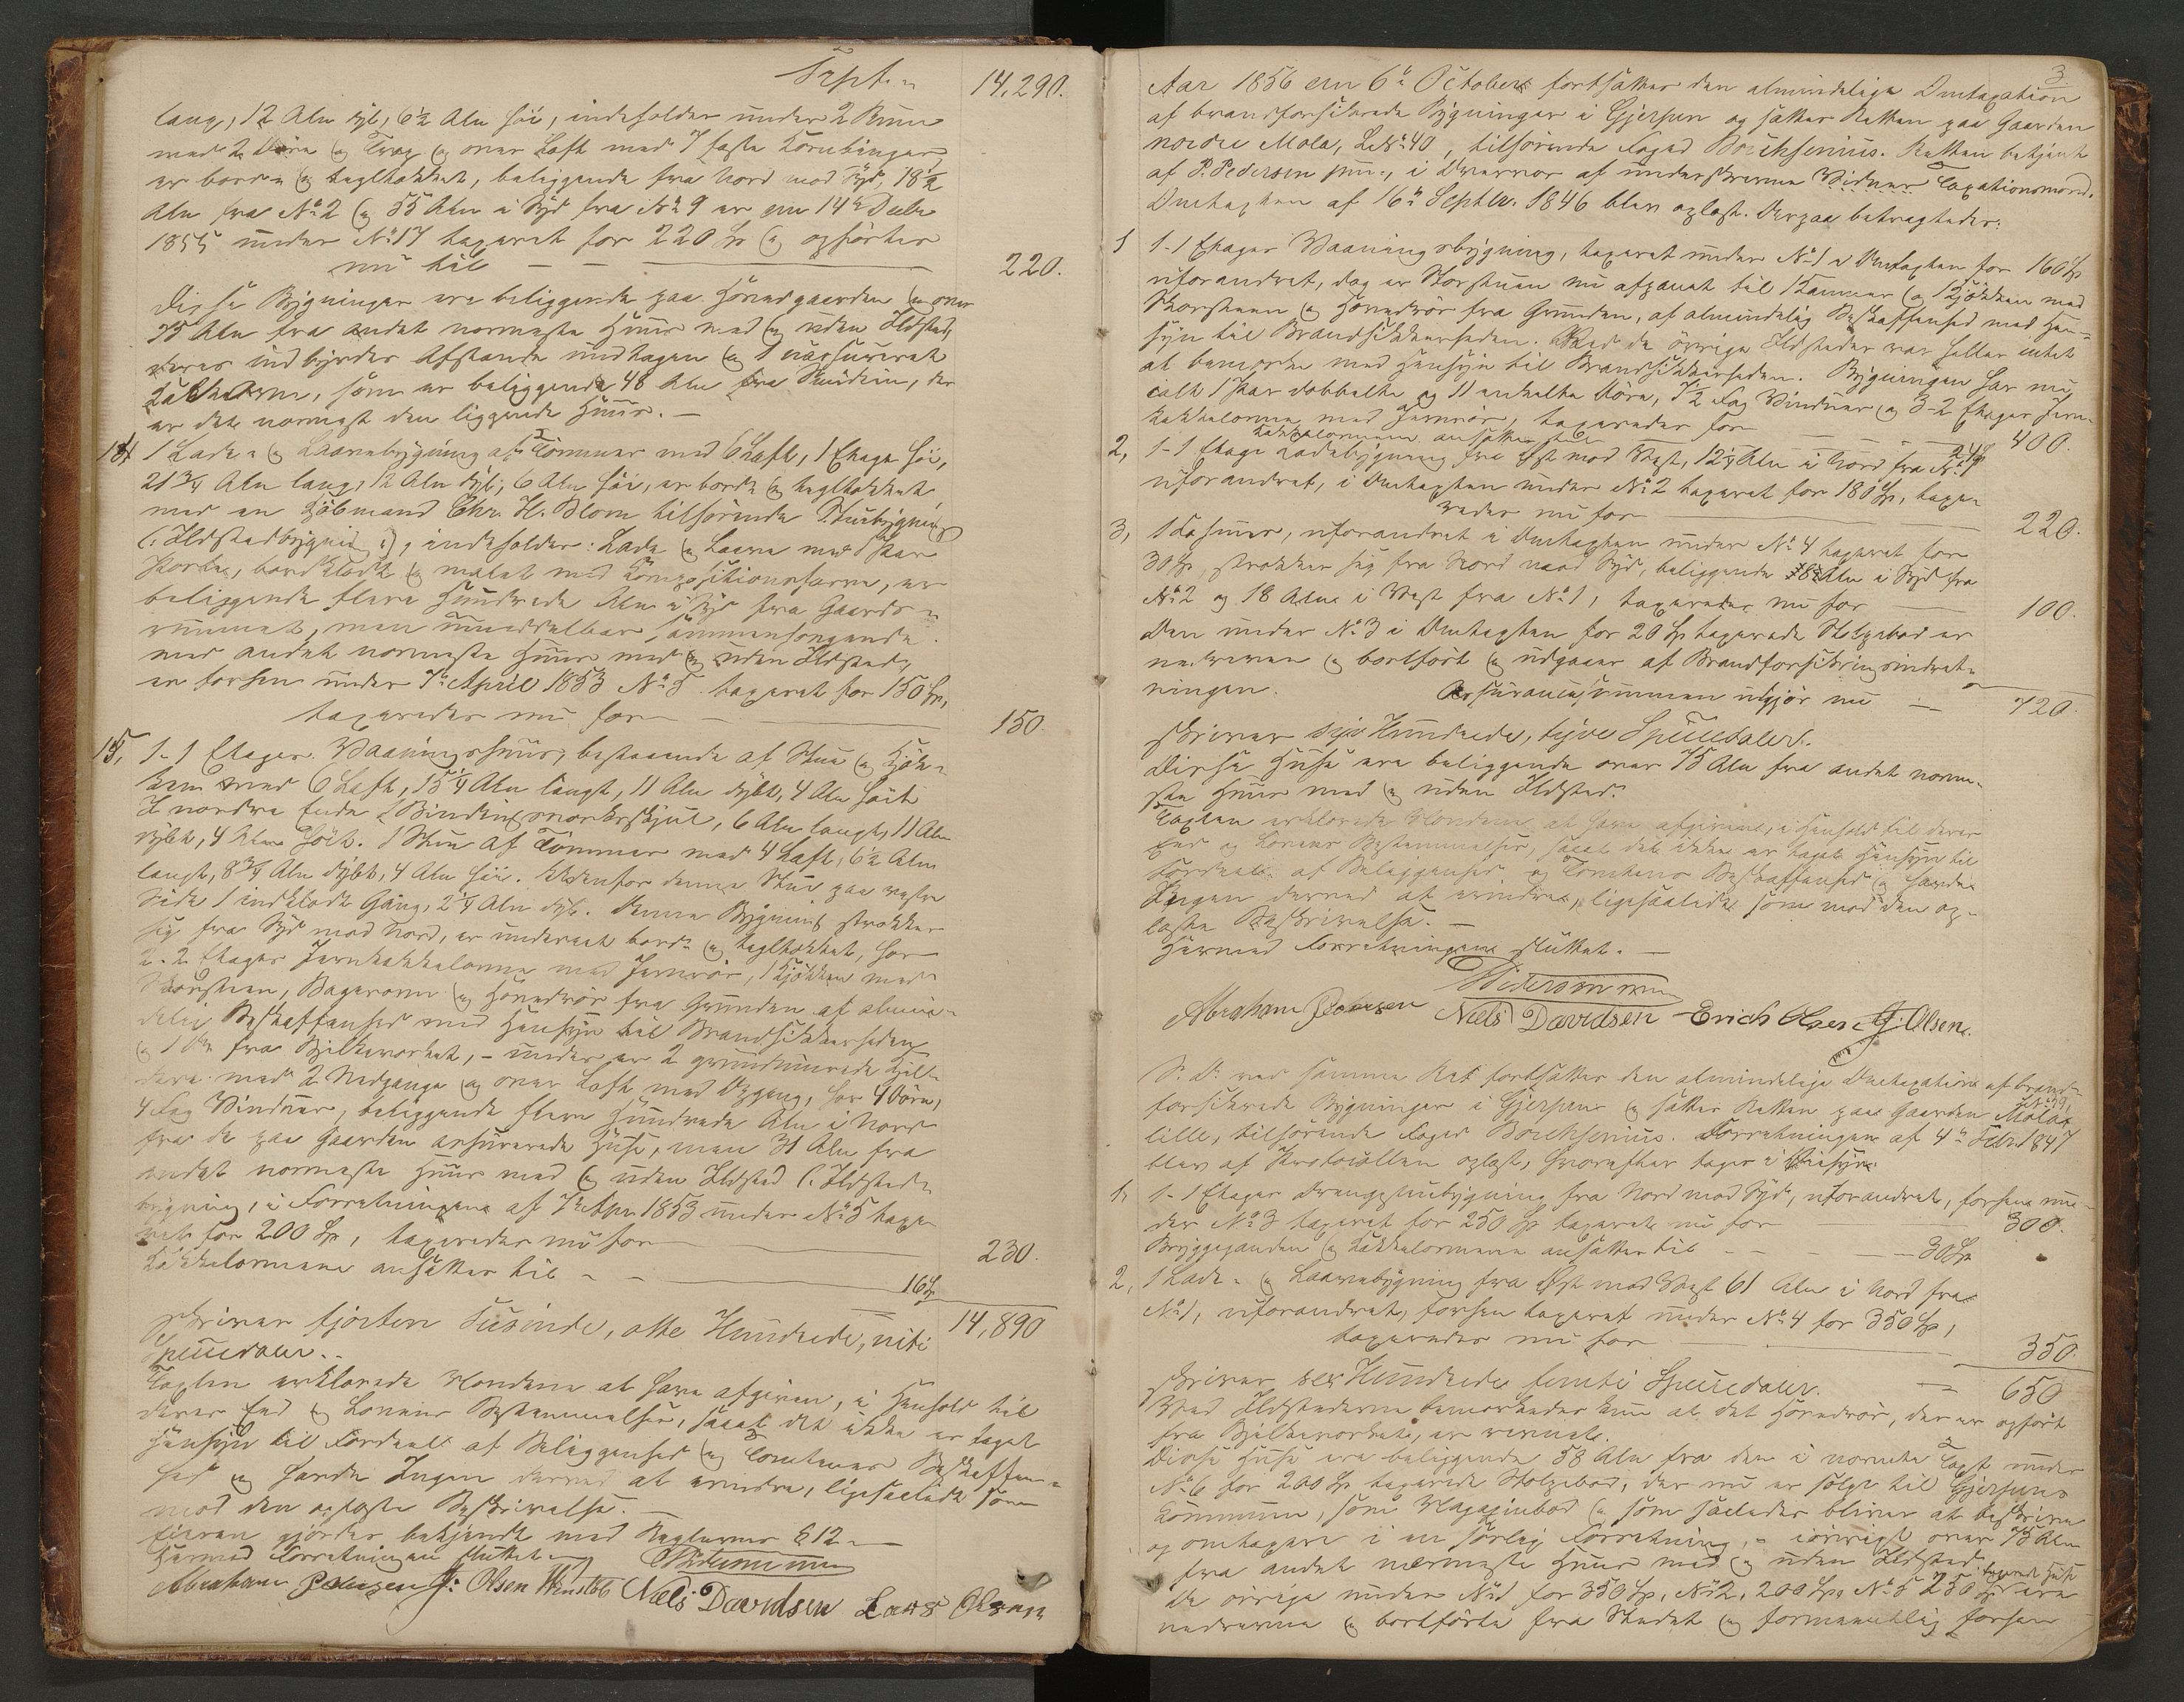 Transp. 14,290.
lang, 12 Alen dyb, 6½ Alen høi, indeholder under 2 Rum
med 2 Döre og Trap og over Loft med 7 faste Kornbinger
er bord- og tegltækket, beliggende fra Nord mod Syd, 18½
Alen fra No 2 og 55 Alen i Syd fra No 9 er den 14de Decbr
1855 under No 17 taxeret for 220 Sp og opføres
nu til 220.
Disse Bygninger ere beliggende paa Hovedgaarden og over
75 Alen fra andet nærmeste Huus med og uden Ildsted,
deres indbyrdes Afstande undtagen og 1 uassureret
som er beliggende 48 Alen fra der
er det nærmest den liggende Huus. —
14 1 Lade- og Laavebygning af Tømmer med 6 Laft, 1 Etage høi,
21¾ Alen lang, 12 Alen dyb, 6 Alen høi, er bord- og tegltækket
med en Kjöbmand Chr. H. Blom tilhørende Stuebygning
(: Ildstedbygning :), indeholder: Lade og Laave med 1 Par
Porte, bordklædt og malet med Compositionsfarve, er
beliggende flere Hundrede Alen i Syd fra Gaards-
rummet, men umiddelbar sammenhængende
med andet nærmeste Huus med og uden Ildsted,
er forhen under 7de April 1853 No 5 taxeret for 150 Sp,
taxeredes nu for 150.
15, 1-1 Etages Vaaningshuus, bestaaende af Stue og Kjøk-
ken med 6 Laft, 15¼ Alen langt, 11 Alen dybt, 4 Alen høit
I nordre Ende 1 Bindingsværksskjul, 6 Alen langt, 11 Alen
dybt, 4 Alen høit. 1 Stue af Tømmer med 4 Laft, 6½ Alen
langt, 8¾ Alen dybt, 4 Alen høi. Udenfor denne Stue paa vestre
Side 1 indklædt Gang, 2¼ Alen dyb. Denne Bygning strækker
sig fra Syd mod Nord, er underet bord- og tegltækket, har
2-2 Etages Jernkakkelovne med Jernrør, 1 Kjökken med
Skorsteen, Bagerovn og Hovedrør fra Grunden af almin-
delig Beskaffenhed med Hensyn til Brandsikkerheden
og 1 fra Bjelkeværket, - under er 2 grundmurede Kjel-
dere med 2 Nedgange og over Loft med Opgang, har 4 Döre,
4 Fag Vinduer, beliggende flere Hundrede Alen i Nord
fra de paa Gaarden assurerede Huse, men 31 Alen fra
andet nærmeste Huus med og uden Ildsted (: Ildsteds-
bygning, i Forretningen af 7de Apr. 1853 under No 5 taxe-
ret for 200 Sp, taxeredes nu for 230.
Kakkelovnene ansættes til 16 Sp
Skriver fjorten Tusinde, otte Hundrede, niti 14,890
Speciedaler..
Taxten erklærede Mændene at have afgiven, i Henhold til
deres Eed og Lovens Bestemmelser, saaat det ikke er taget
Hensyn til Fordeel af Beliggenhed og Tomtens Beskaffen-
hed og havde Ingen derved at erindre, ligesaalidt som
mod den oplæste Beskrivelse. —
Eieren gjordes bekjendt med Reglernes § 12 —
Hermed Forretningen sluttet —
Pedersen
Abraham Pedersen J: Olsen Wenstöb Niels Davidsen Lars Olsen
3.
Aar 1856 den 6te October fortsættes den almindelige Omtaxation
af brandforsikrede Bygninger i Gjerpen og sættes Retten paa Gaarden
nordre Mæla, L.No 40, tilhørende Foged Borchsenius. Retten betjent
af P. Pedersen jun., i Overvær af underskrevne Vidner Taxationsmænd.
Omtaxten af 16de Septbr. 1846 blev oplæst. Derpaa betragtedes:
1 1-1 Etages Vaaningsbygning, taxeret under No 1 i Omtaxten for 160 Sp
uforandret, dog er Storstuen nu afpanet til 1 Kammer og 1 Kjökken med
Skorsteen og Hovedrør fra Grunden, af almindelig Beskaffenhed med Hen-
syn til Brandsikkerheden. Ved de övrige Ildsteder var heller intet
at bemærke med Hensyn til Brandsikkerheden. Bygningen har nu
ialt 1 Par dobbelte og 11 enkelte Döre, 7½ Fag Vinduer og 3-2 Etages Jern-
kakkelovne med Jernrør, taxeredes for 400.
Kakkelovnene ansættes til 24 Sp
2, 1-1 Etage Ladebygning fra Øst mod Vest, 12¼ Alen i Nord fra No 1
uforandret, i Omtaxten under No 2 taxeret for 180 Sp, taxe-
redes nu for 220.
3, 1 Fæhuus, uforandret i Omtaxten under No 4 taxeret for
30 Sp, strækker sig fra Nord mod Syd, beliggende Alen i Syd fra
No 2 og 18 Alen i Vest fra No 1, taxeredes nu for 100.
Den under No 3 i Omtaxten for 20 Sp taxerede Stolpebod er
nedreven og bortført og udgaaer af Brandforsikringsindret-
ningen. Assurancesummen udgjör nu 720.
Skriver syv Hundrede, tyve Speciedaler.
Disse Huse ere beliggende over 75 Alen fra andet nærme-
ste Huus med og uden Ildsted.
Taxten erklærede Mændene at have afgivet, i Henhold til deres
Eed og Lovens Bestemmelser, saaat det ikke er taget Hensyn til
Fordeel af Beliggenhed og Tomtens Beskaffenhed og havde
Ingen derved at erindre, ligesaalidt som mod den op-
læste Beskrivelse. —
Hermed Forretningen sluttet. —
Pedersen
Abraham Pedersen Niels Davidsen Erich Olsen J. Olsen.
S. D. ved samme Ret fortsættes den almindelige Omtaxation af brand-
forsikrede Bygninger i Gjerpen og sættes Retten paa Gaarden Mæla
L.No 39,
lille, tilhørende Foged Borchsenius. Forretningen af 4de Febr. 1847
blev af Protocollen oplæst, hvorefter toges i Öiesyn:
1, 1-1 Etages Drengestuebygning fra Nord mod Syd, uforandret, forhen un-
der No 3 taxeret for 250 Sp taxeredes nu for 300.
Bryggepanden og Kakkelovnene ansættes til 30 Sp
2, 1 Lade- og Laavebygning fra Øst mod Vest 61 Alen i Nord fra
No 1, uforandret, forhen taxeret under No 4 for 350 Sp,
taxeredes nu for 350.
Skriver sex Hundrede femti Speciedaler. 650
Ved Ildstederne bemærkedes kun at det Hovedrør, der er opført
fra Bjelkeværket, er
Disse Huse ere beliggende 58 Alen fra den i nævnte Taxt under
No 6 for 200 Sp taxerede Stolpebod, der nu er solgt til Gjerpens
Kommune, som Magazinbod og som saaledes bliver at beskrive
og omtaxere i en særlig Forretning, - iövrigt over 75 Alen
fra andet nærmeste Huus med og uden Ildsted.
De övrige under No 1 for 350 Sp, No 2, 200 Sp, No 5 250 Sp taxerede Huse ere
nedrevne og bortførte fra Stedet og formeentlig forhen